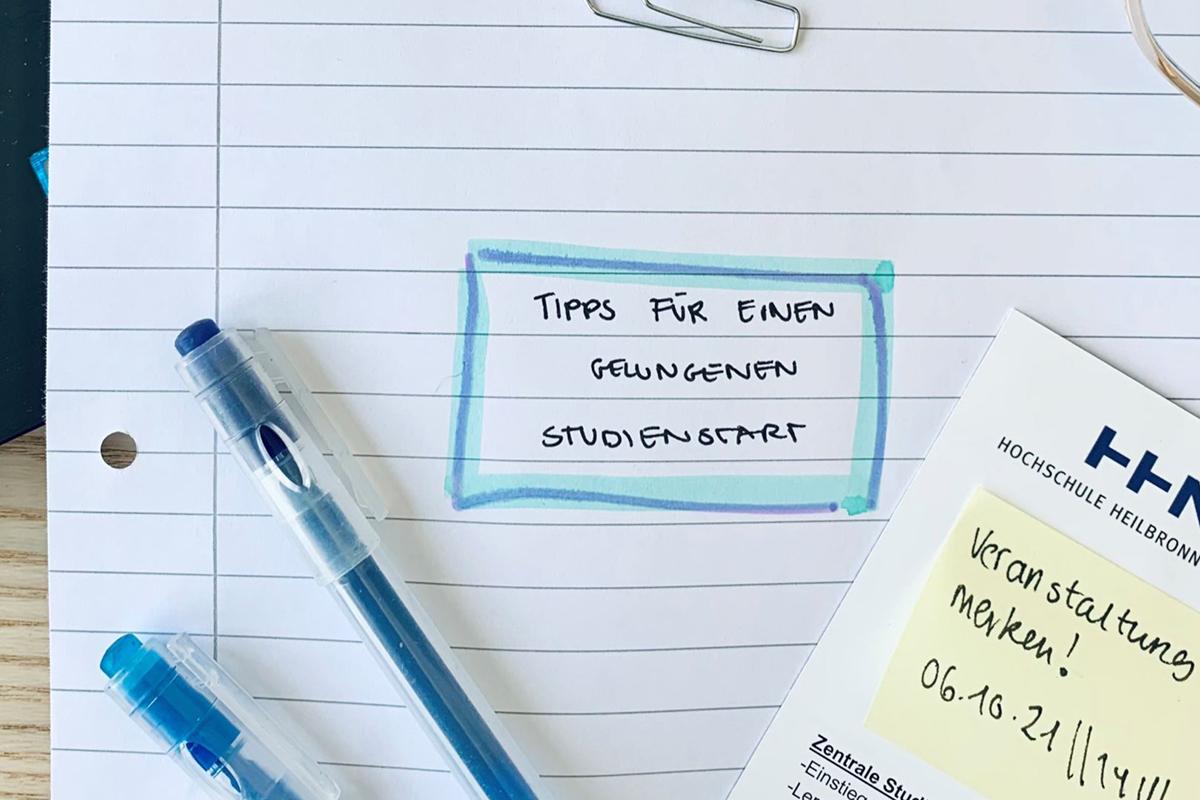 TIPPS FÜR EINEN
GELUNGENEN
STUDIENSTART
HHN
HOCHSCHULE HEILBRONN
Veranstaltung
merken!
06.10.21 || 14
Zentrale
-Einstieg